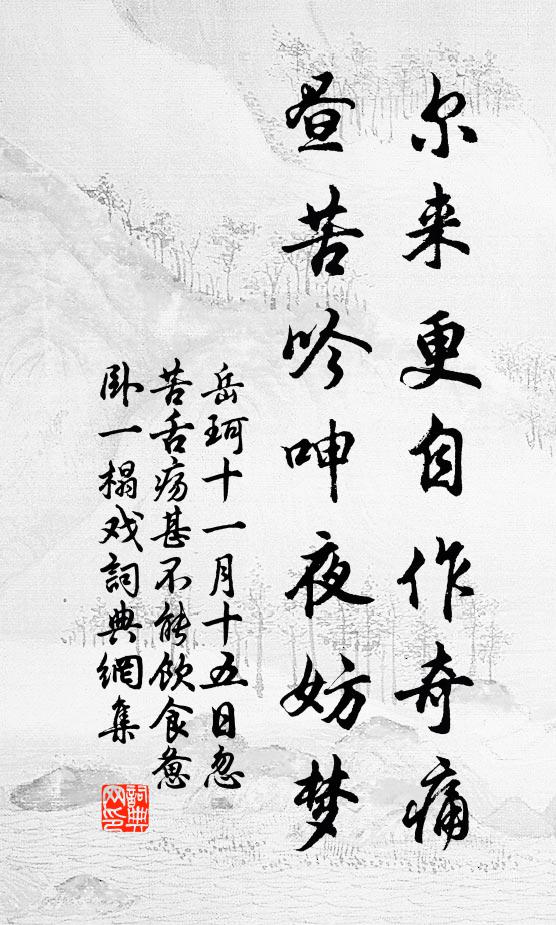 尔来更自作奇痛
昼苦吟呻夜妨梦
岳珂十一月十五日忽
苦舌疡甚不能饮食惫
卧一榻戏詞典網集
詞典
网印